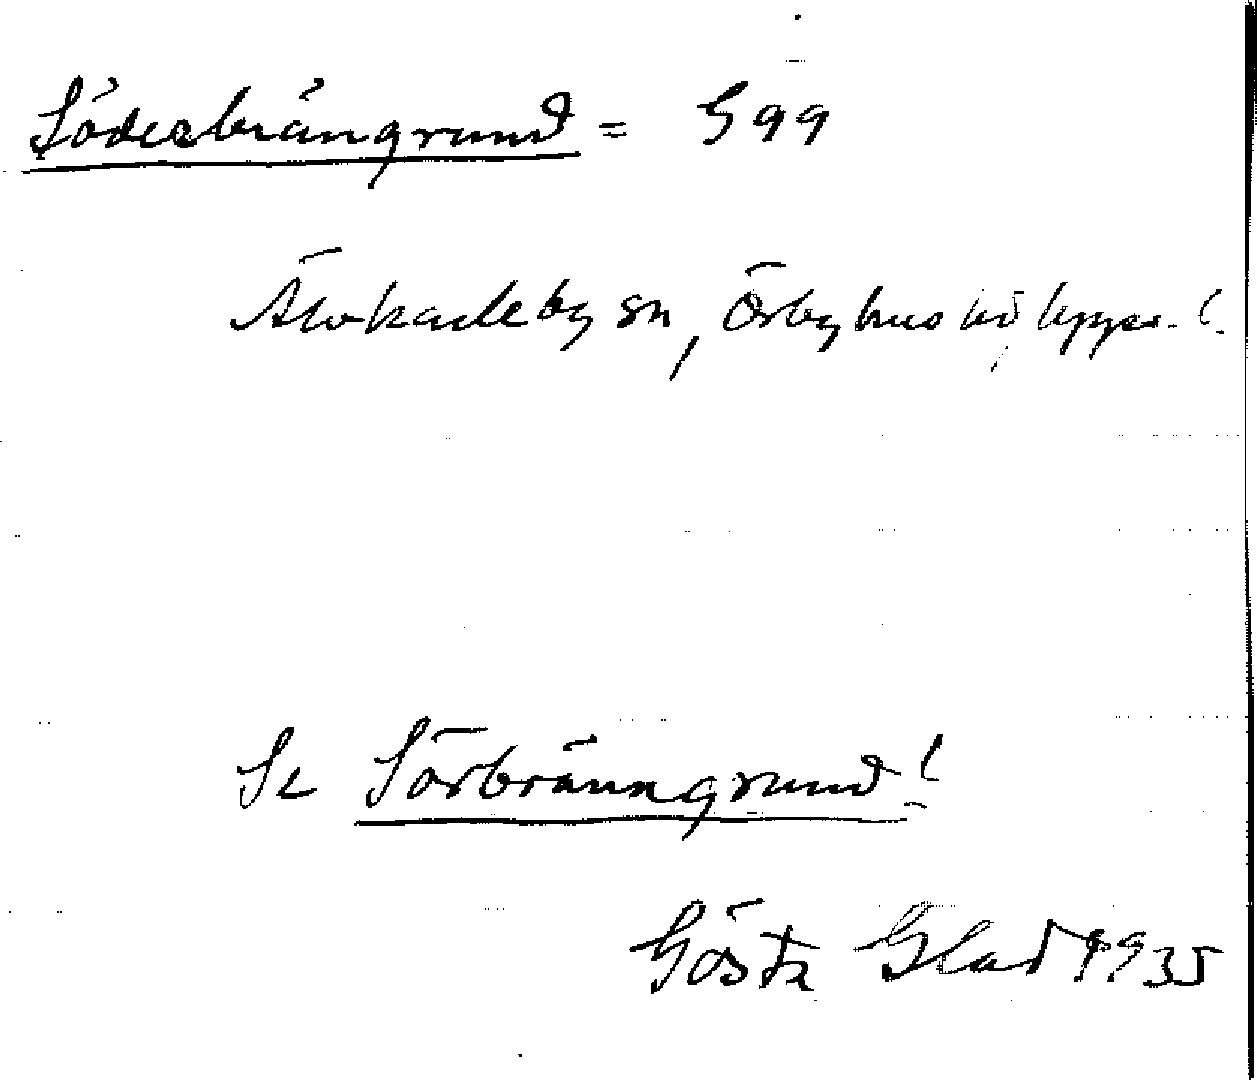 Söderbrängrund = S 99
Älvkarleby sn, Örbyhus hd,
Se Sörbränngrund!
Gösta Glad 1935